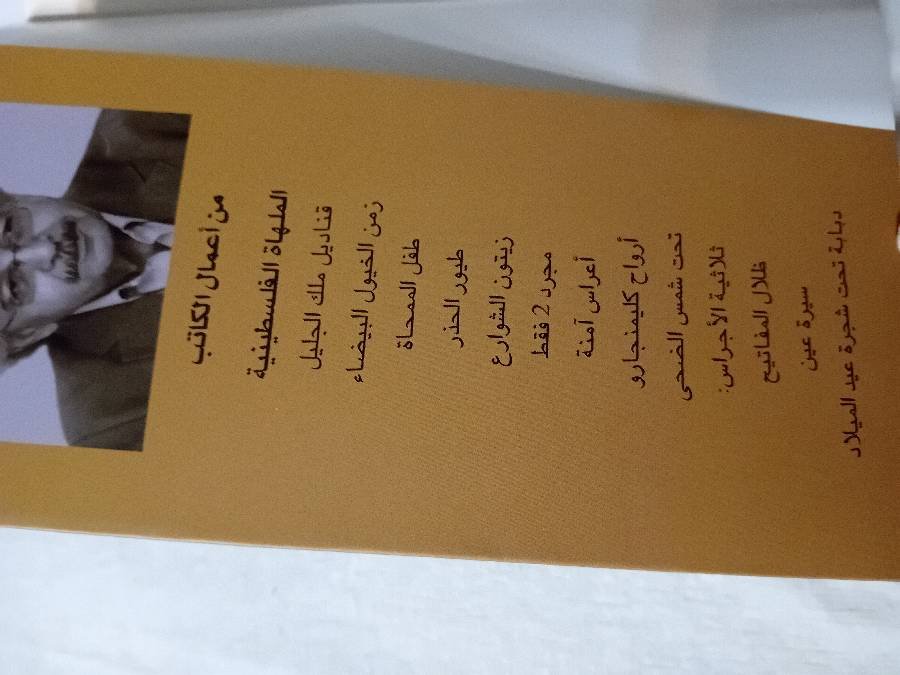 من أعمال الكاتب
الملهاة الفلسطينية
قناديل ملك الجليل
زمن الخيول البيضاء
طفل الممحاة
طيور الحذر
زيتون الشوارع
مجرد 2 فقط
أعراس آمنة
أرواح كليمنجارو
تحت شمس الضحى
ثلاثية الأجراس:
ظلال المفاتيح
سيرة عين
دبابة تحت شجرة عيد الميلاد